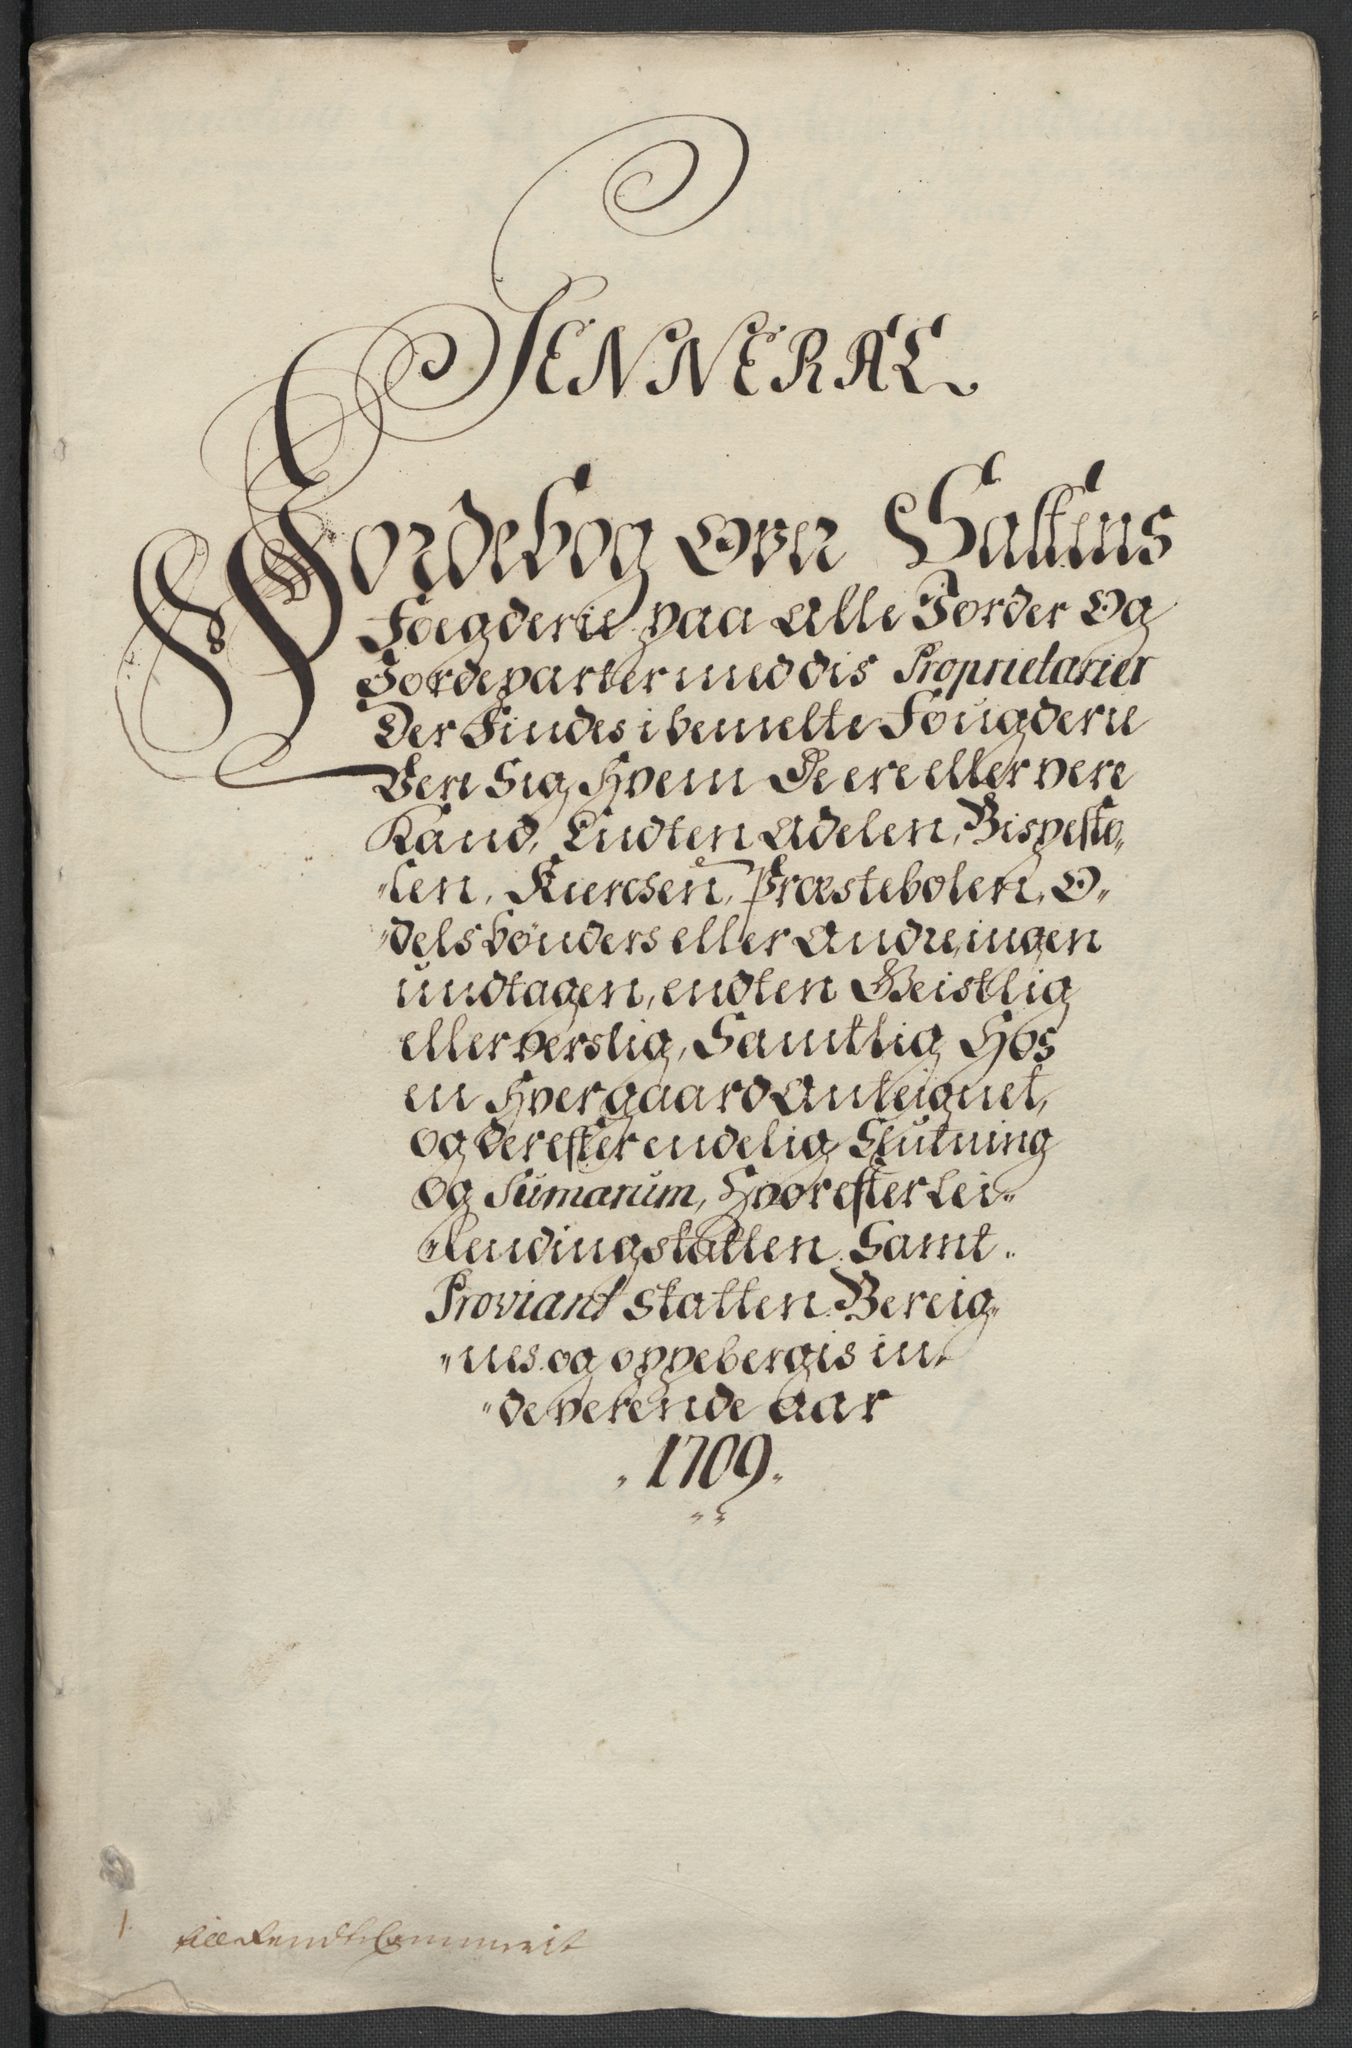 JENNERAL
Jordebog Over Saltens
Foegderie paa Alle Jorder Og
Jordeparter med dis Proprietarier
Der Findes i bemelte Fougderie
Vere Sig Hvem De ere eller vere
Kand, Endten Adelen, Bispesto„
„len, Kierchen, Præstebolen, O„
„dels bønders eller Andre, ingen
undtagen, endten Geistlig
eller verslig, Samtlig Hos
en Hver gaard Anteignet,
og derefter endelig Slutning
og Sumarum, Hvorefter Lei„
„lendingskatten Samt
Proviant skatten Bereig„
„nes og oppebergis in„
„deverende aar
1709.
1. til Rendte Cammerit